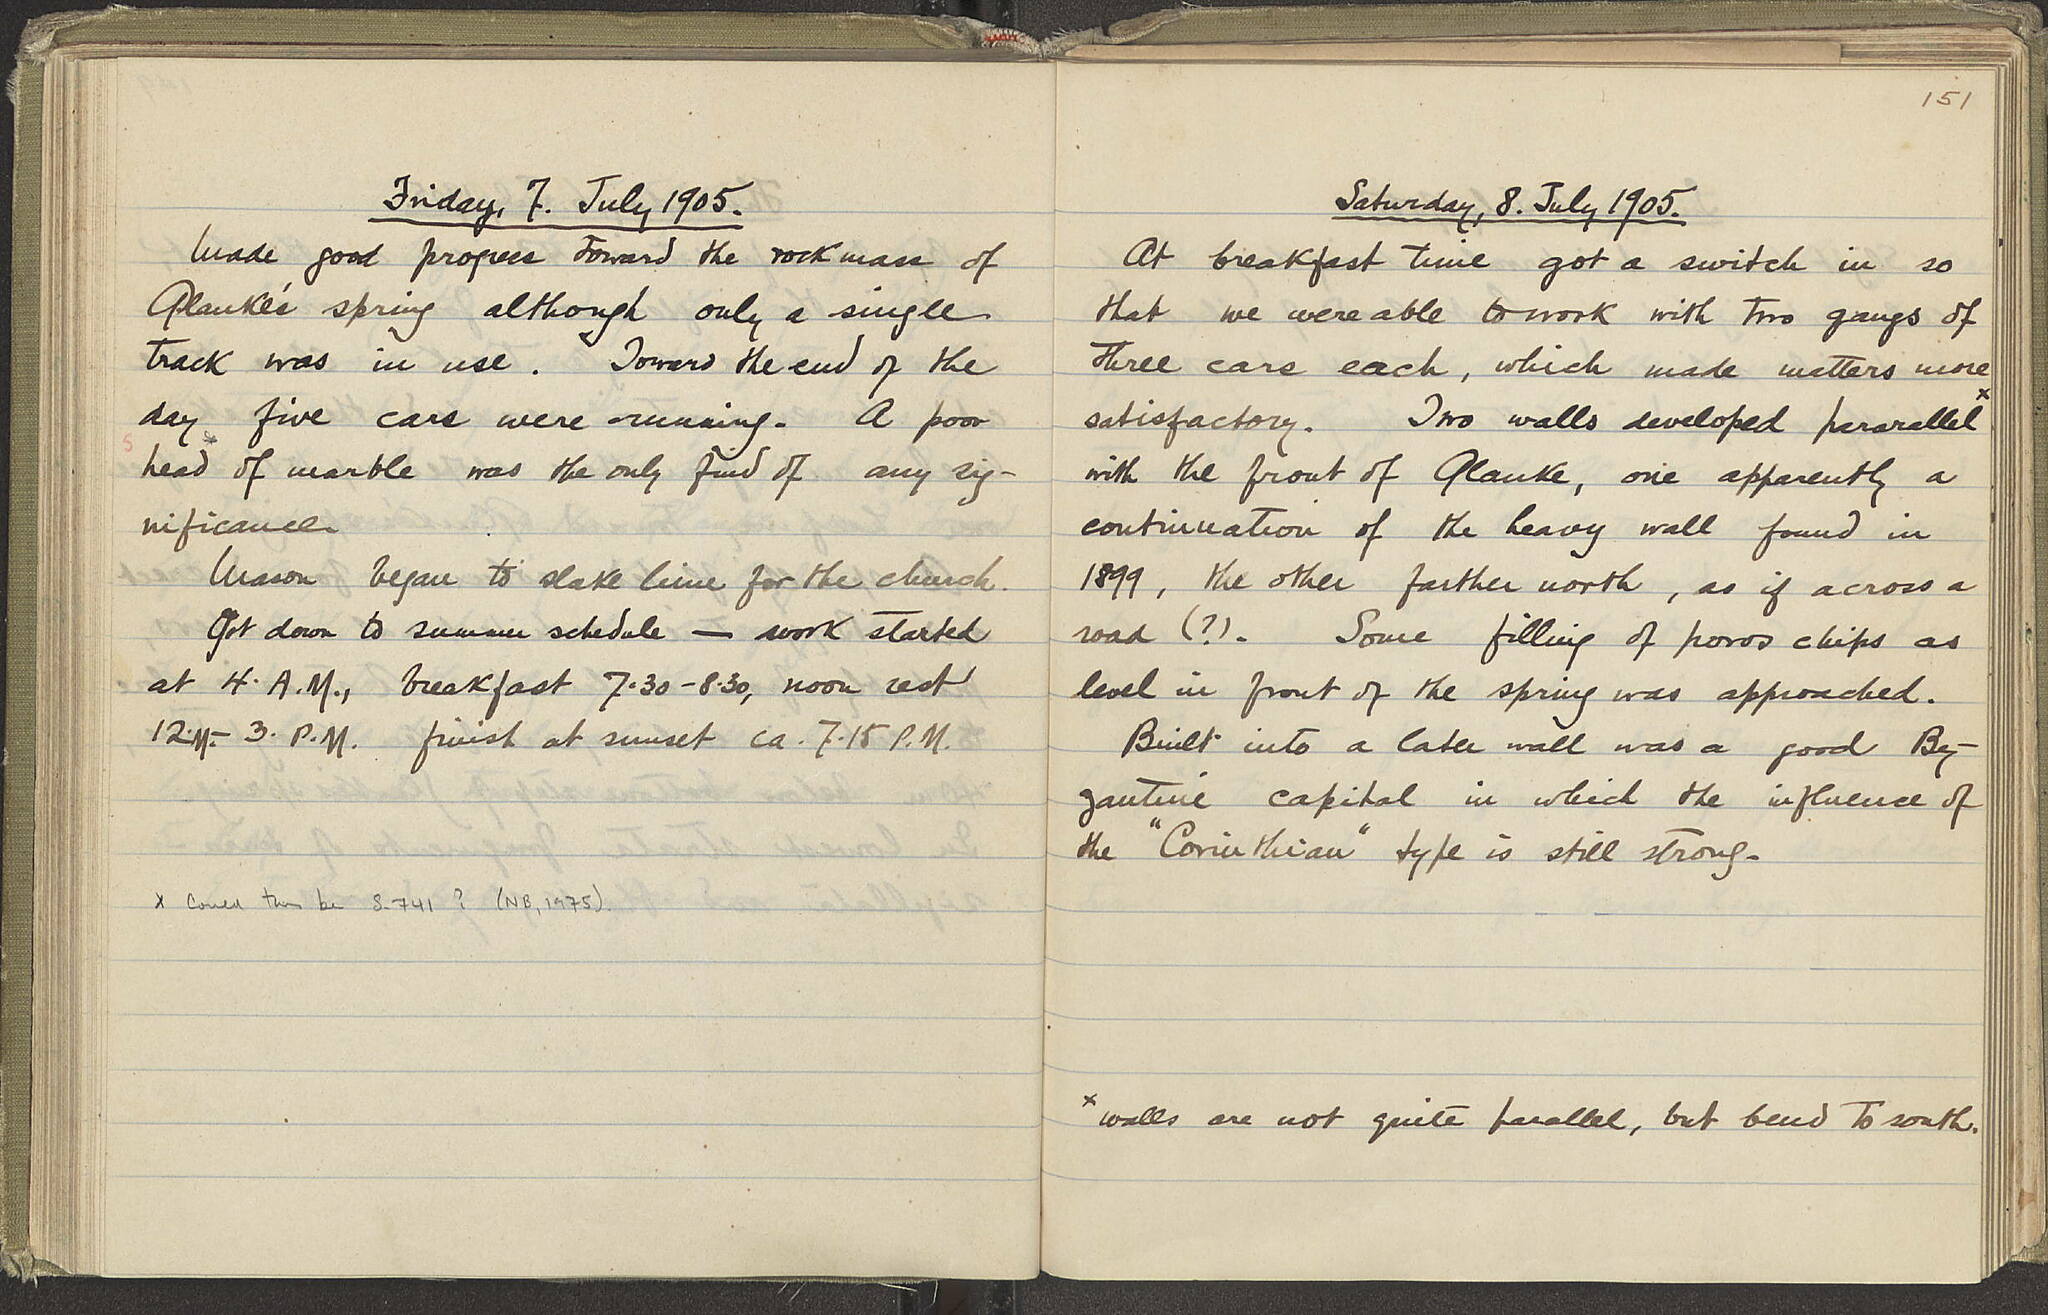 Friday, 7. July 1905.
Made good progress toward the rock mass of
Glauke's spring although only a single
track was in use. Toward the end of the
day five cars were running. A poor
S x
head of marble was the only find of any sig-
nificance.
Mason began to slake lime for the church.
Got down to summer schedule — work started
at 4. A.M., breakfast 7.30-8.30, noon rest
12.M.- 3. P.M. finish at sunset ca. 7.15 P.M.
x Could this be S-741? (NB, 1975).
151
Saturday, 8. July 1905.
At breakfast time got a switch in so
that we were able to work with two gangs of
three cars each, which made matters more
satisfactory. Two walls developed pararallel x
with the front of Glauke, one apparently a
continuation of the heavy wall found in
1899, the other farther north, as if across a
road (?). Some filling of poros chips as
level in front of the spring was approached.
Built into a later wall was a good By-
zantine capital in which the influence of
the "Corinthian" type is still strong.
x walls are not quite parallel, but bend to south.